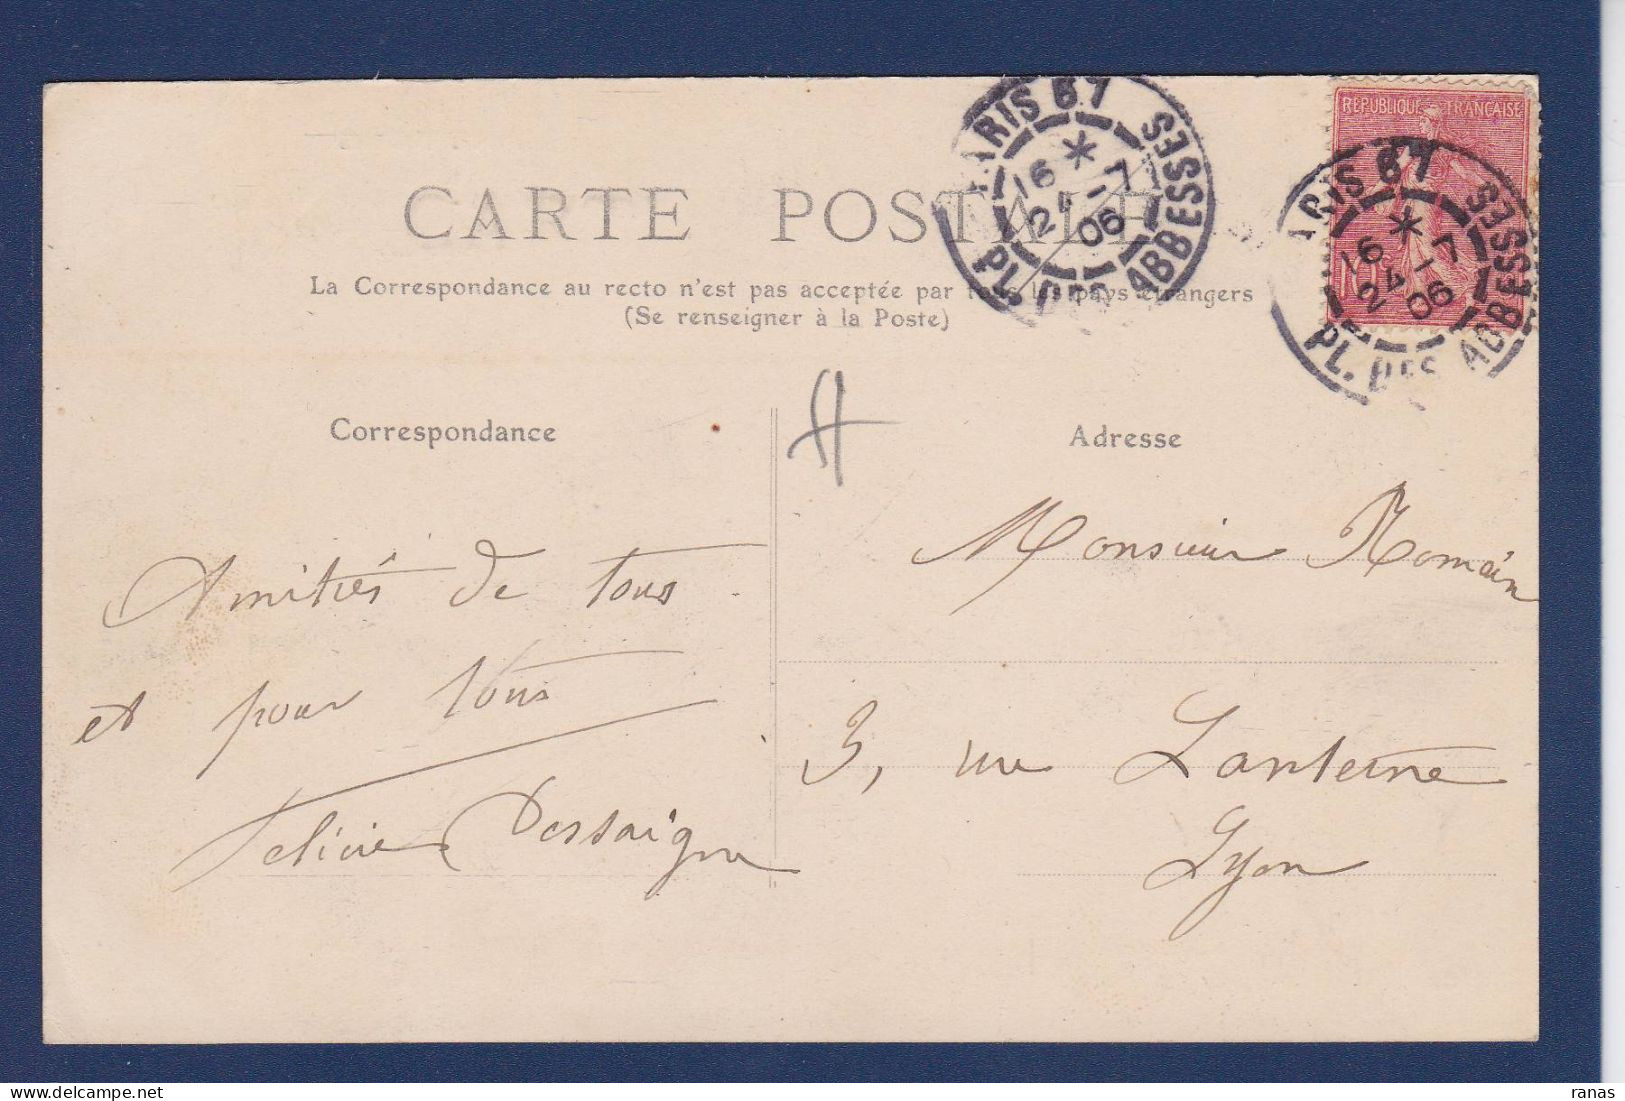 PARIS 67
16 * 24 -7 06
PL. DES ABBESSES
REPUBLIQUE FRANÇAISE
10c
ARIS 67
16 * 24 -7 06
PL. DES ABBESSES
CARTE POSTALE
La Correspondance au recto n'est pas acceptée par tous les pays étrangers
(Se renseigner à la Poste)
Correspondance
Amitiés de tous
et pour tous
Felicie Dessaigne
Adresse
Monsieur Romain
3, rue Lanterne
Lyon
ranas